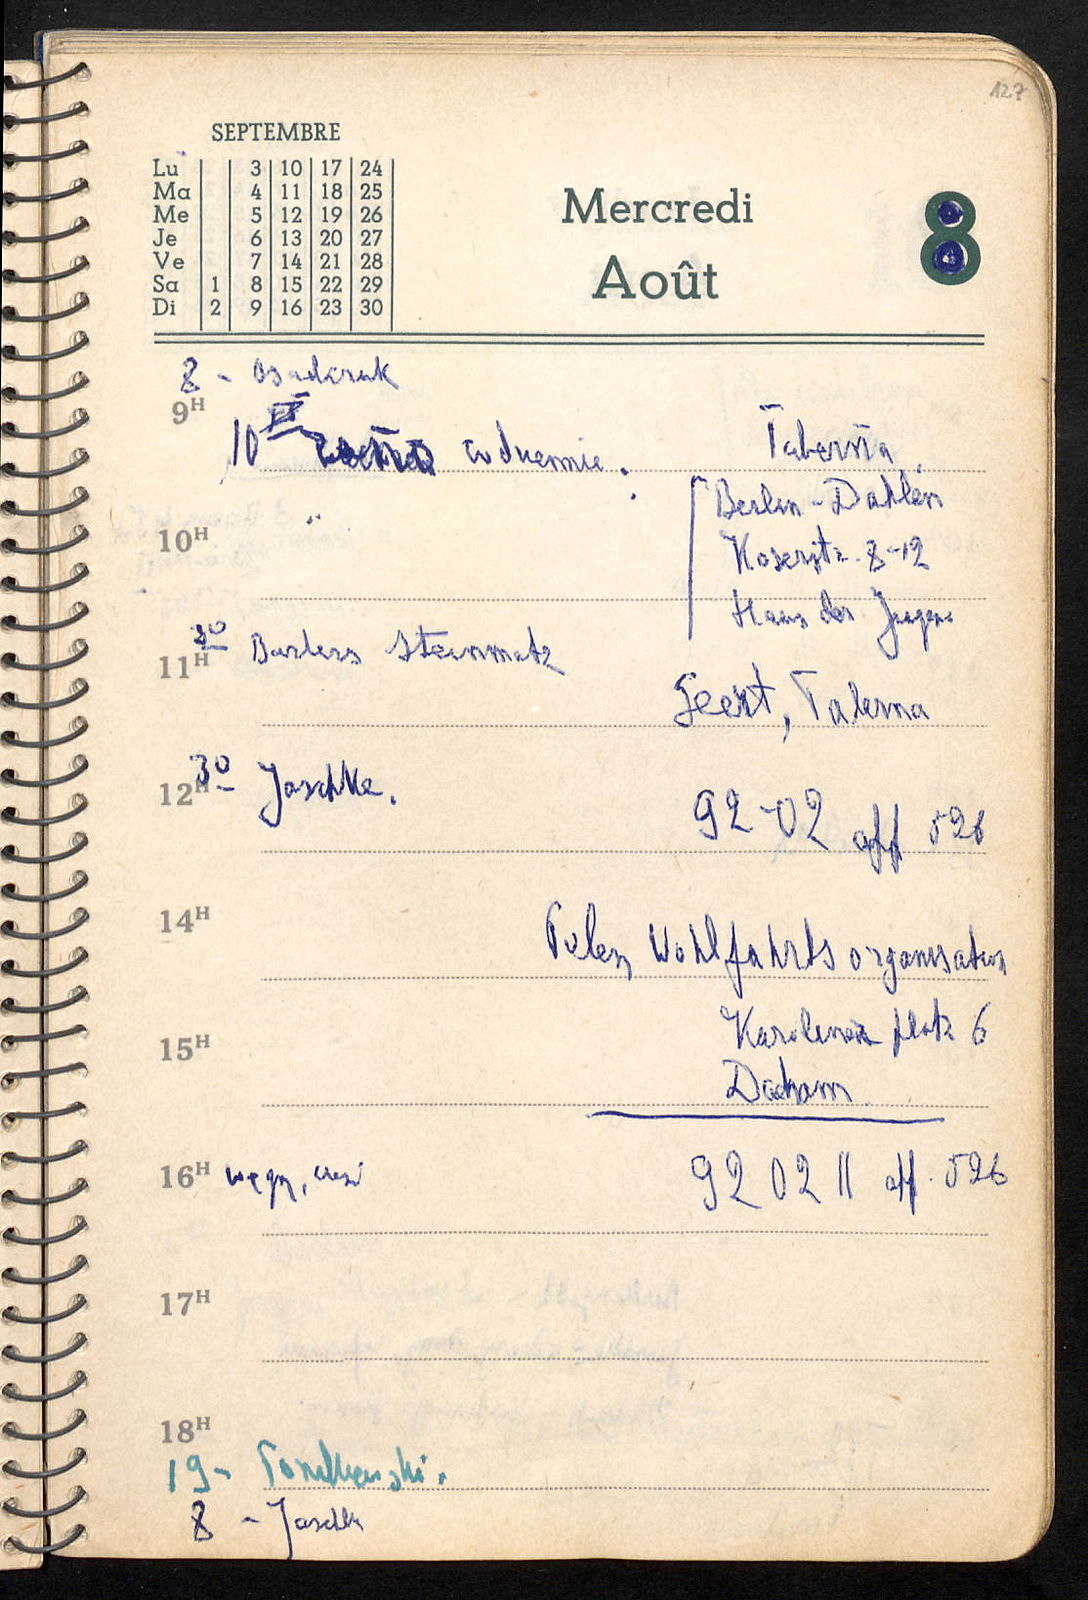 127
SEPTEMBRE
Lu 3 10 17 24
Ma 4 11 18 25
Me 5 12 19 26
Je 6 13 20 27
Ve 7 14 21 28
Sa 1 8 15 22 29
Di 2 9 16 23 30
Mercredi 8
Août
8 -
9H
10 codziennie. Taberna
Berlin-Dahlem
10H
Koserstr. 8-12
Haus der Jugend
11H 30 Barbara Steinmetz
Geert, Taberna
12H 30 Jaschke.
92-02 app 526
14H
Polen Wohlfahrts organisation
15H
Karolinen platz 6
16H
92 02 11 app. 526
17H
18H
19-
8 - Jaschke